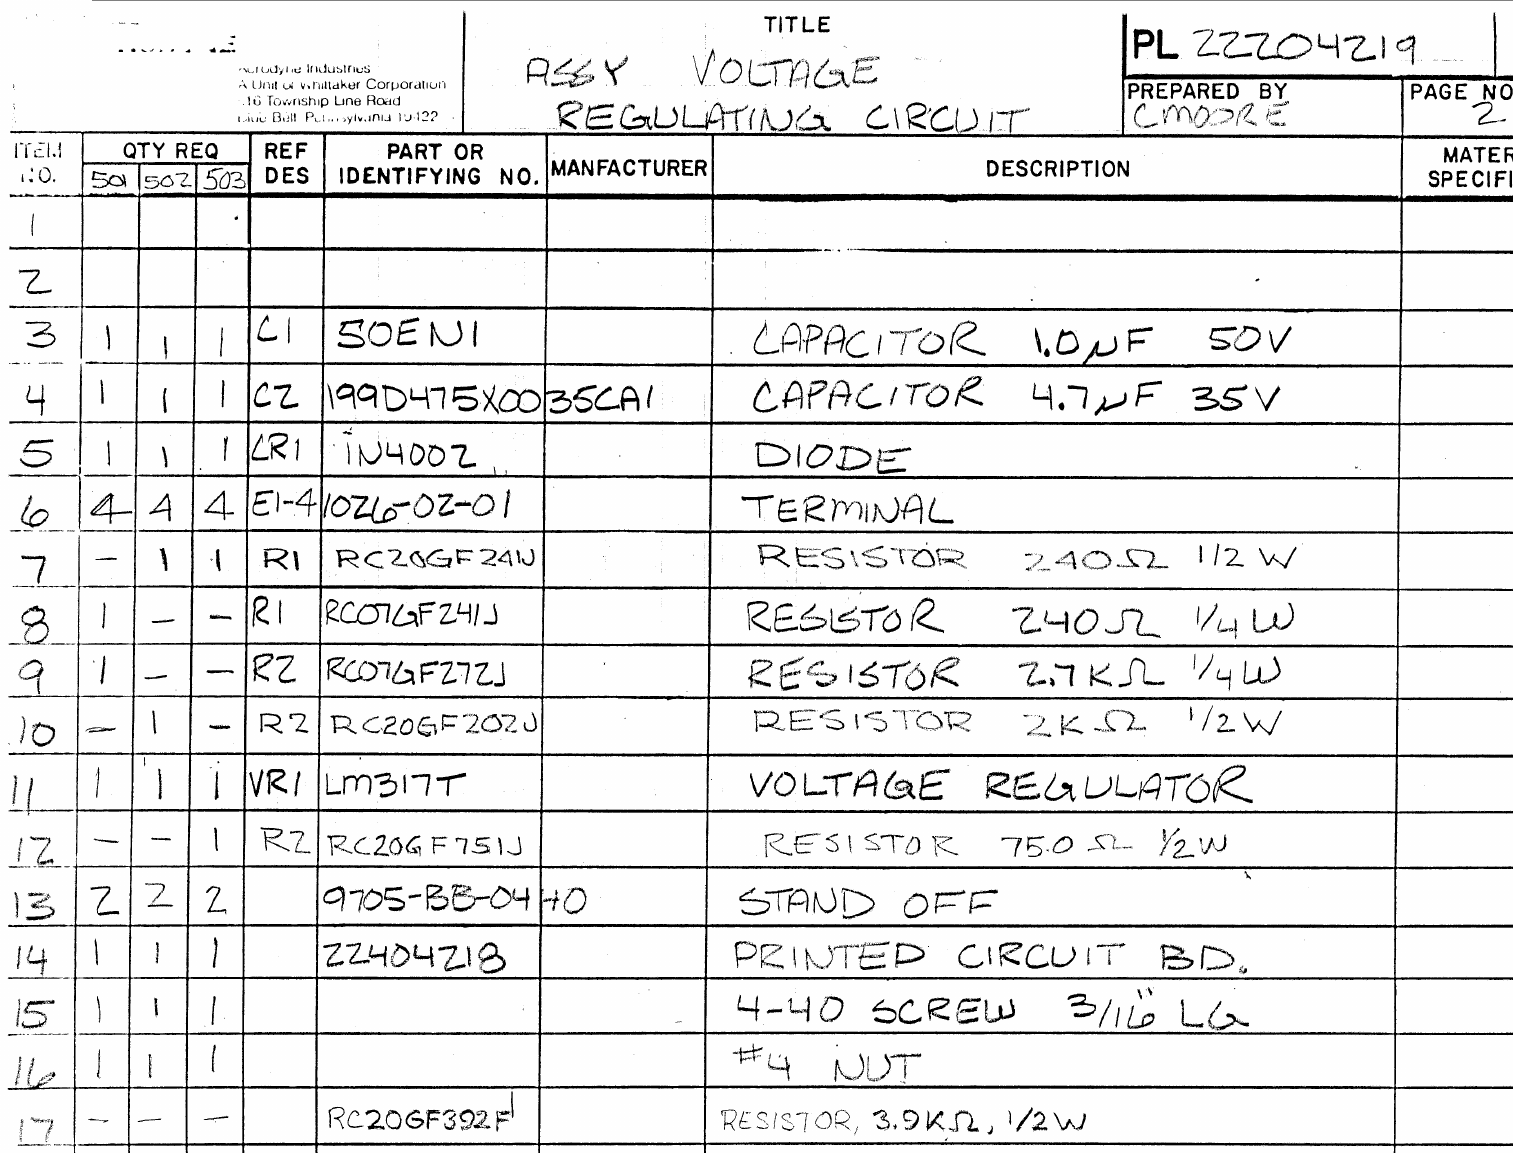 TITLE
Industries
A Unit of Whittaker Corporation
Township Line Road
ASSY VOLTAGE
REGULATING CIRCUIT
PL 22204219
PREPARED BY
CMOORE
PAGE NO
2
ITEM NO. QTY REQ 501 502 503 REF DES PART OR IDENTIFYING NO. MANFACTURER DESCRIPTION MATER SPECIFI
1
2
3 1 1 1 C1 50EN1 CAPACITOR 1.0µF 50V
4 1 1 1 C2 199D475X0035CA1 CAPACITOR 4.7µF 35V
5 1 1 1 CR1 1N4002 DIODE
6 4 4 4 E1-4 1026-02-01 TERMINAL
7 - 1 1 R1 RC20GF241J RESISTOR 240Ω 1/2 W
8 1 - - R1 RC07GF241J RESISTOR 240Ω 1/4 W
9 1 - - R2 RC07GF272J RESISTOR 2.7KΩ 1/4W
10 - 1 - R2 RC20GF202J RESISTOR 2KΩ 1/2W
11 1 1 1 VR1 LM317T VOLTAGE REGULATOR
12 - - 1 R2 RC20GF751J RESISTOR 750 Ω 1/2W
13 2 2 2 9705-BB-0440 STAND OFF
14 1 1 1 22404218 PRINTED CIRCUIT BD.
15 1 1 1 4-40 SCREW 3/16" LG
16 1 1 1 #4 NUT
17 - - - RC20GF392F RESISTOR, 3.9KΩ, 1/2W